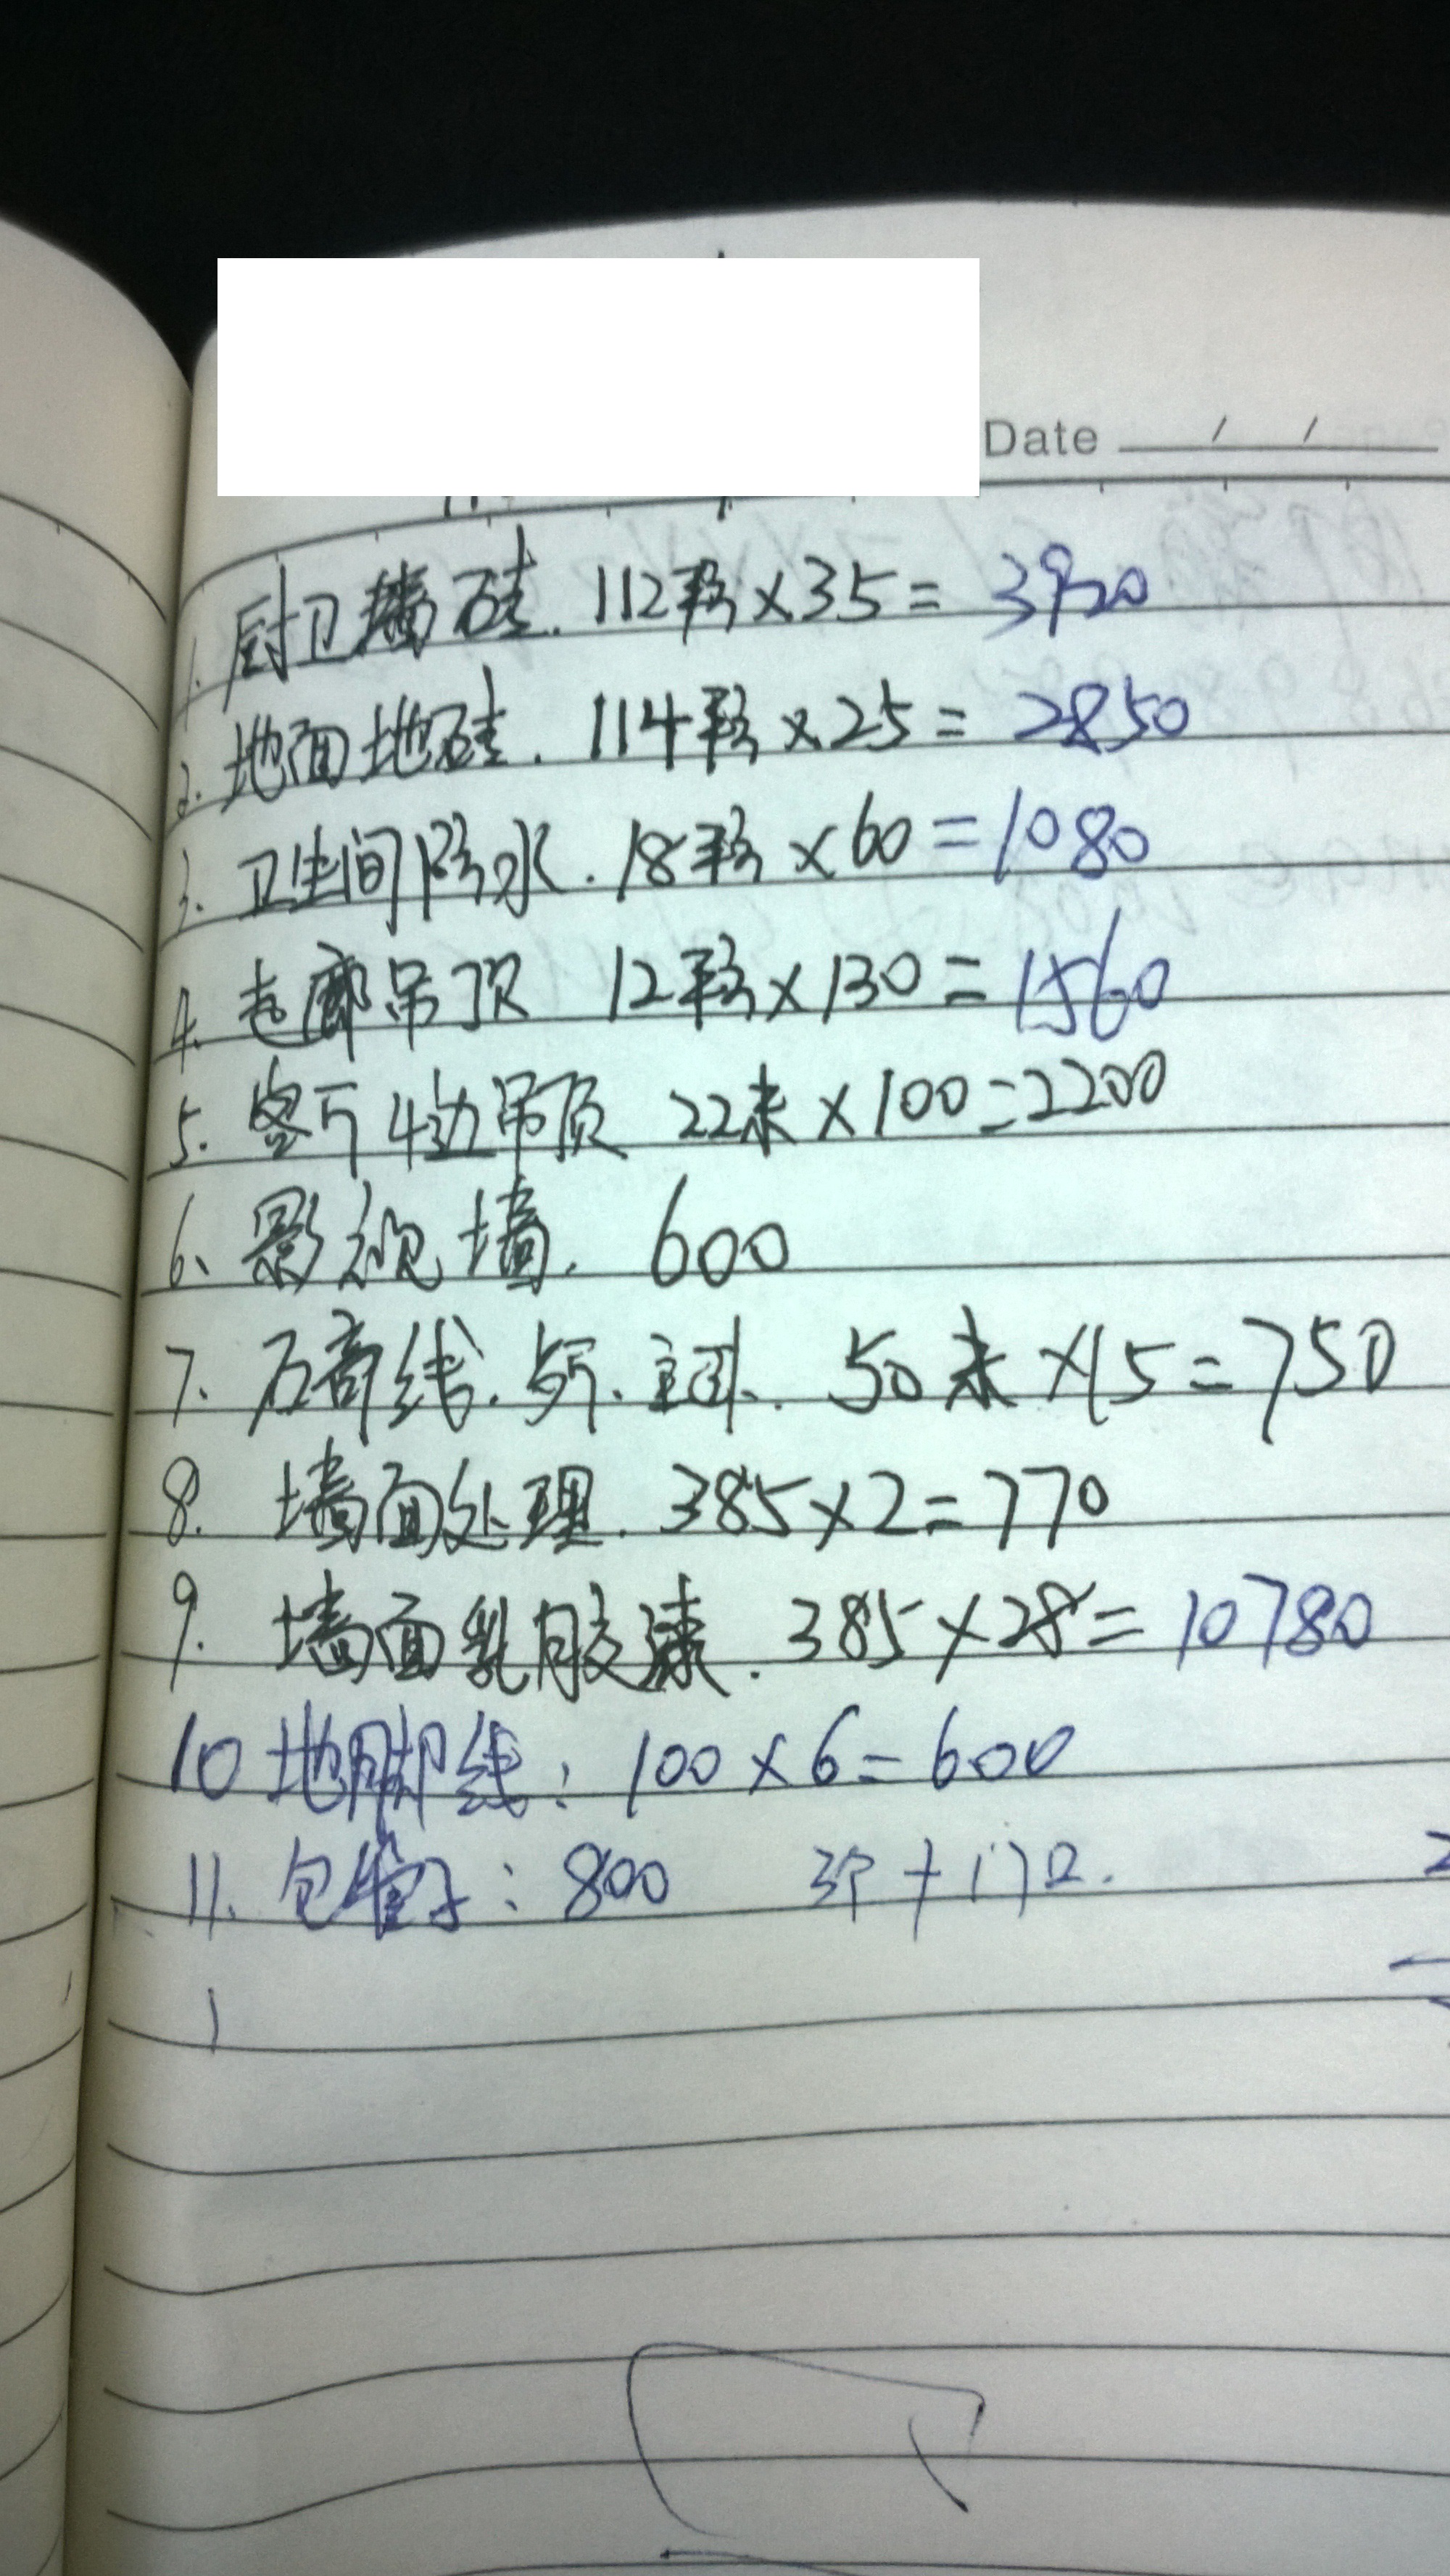 Date / /
1. 厨卫墙硅. 112平方×35= 3920
2. 地面地硅. 114平方×25= 2850
3. 卫生间防水. 18平方×60=1080
4. 走廊吊顶 12平方×130=1560
5. 客厅4边吊顶 22米×100=2200
6、影视墙. 600
7、石膏线. 50米×15=750
8. 墙面处理. 385×2=770
9. 墙面乳胶漆. 385×28=10780
10 地脚线: 100×6=600
11. 包管子: 800
1